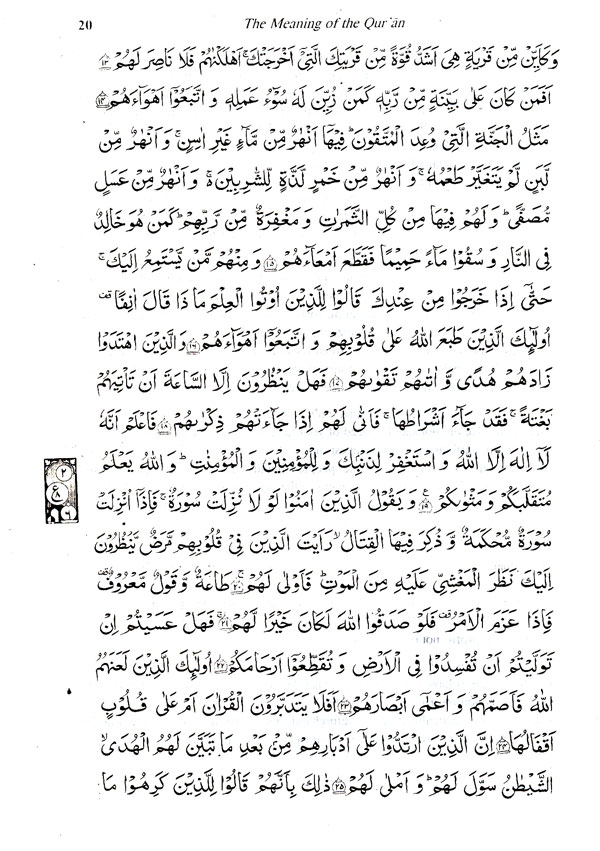 20 The Meaning of the Qur'ān
وَكَاَيِّنْ مِّنْ قَرْيَةٍ هِىَ اَشَدُّ قُوَّةً مِّنْ قَرْيَتِكَ الَّتِىْٓ اَخْرَجَتْكَ ۚ اَهْلَكْنٰهُمْ فَلَا نَاصِرَ لَهُمْ ﴿۱۳﴾
اَفَمَنْ كَانَ عَلٰى بَيِّنَةٍ مِّنْ رَّبِّهٖ كَمَنْ زُيِّنَ لَهٗ سُوْٓءُ عَمَلِهٖ وَ اتَّبَعُوْٓا اَهْوَآءَهُمْ ﴿۱۴﴾
مَثَلُ الْجَنَّةِ الَّتِىْ وُعِدَ الْمُتَّقُوْنَ ؕ فِيْهَآ اَنْهٰرٌ مِّنْ مَّآءٍ غَيْرِ اٰسِنٍ ۚ وَ اَنْهٰرٌ مِّنْ
لَّبَنٍ لَّمْ يَتَغَيَّرْ طَعْمُهٗ ۚ وَ اَنْهٰرٌ مِّنْ خَمْرٍ لَّذَّةٍ لِّلشّٰرِبِيْنَ ۚ وَ اَنْهٰرٌ مِّنْ عَسَلٍ
مُّصَفًّى ؕ وَ لَهُمْ فِيْهَا مِنْ كُلِّ الثَّمَرٰتِ وَ مَغْفِرَةٌ مِّنْ رَّبِّهِمْ ؕ كَمَنْ هُوَ خَالِدٌ
فِى النَّارِ وَ سُقُوْا مَآءً حَمِيْمًا فَقَطَّعَ اَمْعَآءَهُمْ ﴿۱۵﴾ وَ مِنْهُمْ مَّنْ يَّسْتَمِعُ اِلَيْكَ ۚ
حَتّٰٓى اِذَا خَرَجُوْا مِنْ عِنْدِكَ قَالُوْا لِلَّذِيْنَ اُوْتُوا الْعِلْمَ مَا ذَا قَالَ اٰنِفًا
اُولٰٓئِكَ الَّذِيْنَ طَبَعَ اللّٰهُ عَلٰى قُلُوْبِهِمْ وَ اتَّبَعُوْٓا اَهْوَآءَهُمْ ﴿۱۶﴾ وَ الَّذِيْنَ اهْتَدَوْا
زَادَهُمْ هُدًى وَّ اٰتٰهُمْ تَقْوٰىهُمْ ﴿۱۷﴾ فَهَلْ يَنْظُرُوْنَ اِلَّا السَّاعَةَ اَنْ تَاْتِيَهُمْ
بَغْتَةً ۚ فَقَدْ جَآءَ اَشْرَاطُهَا ۚ فَاَنّٰى لَهُمْ اِذَا جَآءَتْهُمْ ذِكْرٰىهُمْ ﴿۱۸﴾ فَاعْلَمْ اَنَّهٗ
لَآ اِلٰهَ اِلَّا اللّٰهُ وَ اسْتَغْفِرْ لِذَنْۢبِكَ وَ لِلْمُؤْمِنِيْنَ وَ الْمُؤْمِنٰتِ ؕ وَ اللّٰهُ يَعْلَمُ
مُتَقَلَّبَكُمْ وَ مَثْوٰىكُمْ ﴿۱۹﴾ وَ يَقُوْلُ الَّذِيْنَ اٰمَنُوْا لَوْ لَا نُزِّلَتْ سُوْرَةٌ ۚ فَاِذَآ اُنْزِلَتْ
سُوْرَةٌ مُّحْكَمَةٌ وَّ ذُكِرَ فِيْهَا الْقِتَالُ ۙ رَاَيْتَ الَّذِيْنَ فِىْ قُلُوْبِهِمْ مَّرَضٌ يَّنْظُرُوْنَ
اِلَيْكَ نَظَرَ الْمَغْشِىِّ عَلَيْهِ مِنَ الْمَوْتِ ؕ فَاَوْلٰى لَهُمْ ﴿۲۰﴾ طَاعَةٌ وَّ قَوْلٌ مَّعْرُوْفٌ
فَاِذَا عَزَمَ الْاَمْرُ فَلَوْ صَدَقُوا اللّٰهَ لَكَانَ خَيْرًا لَّهُمْ ﴿۲۱﴾ فَهَلْ عَسَيْتُمْ اِنْ
تَوَلَّيْتُمْ اَنْ تُفْسِدُوْا فِى الْاَرْضِ وَ تُقَطِّعُوْٓا اَرْحَامَكُمْ ﴿۲۲﴾ اُولٰٓئِكَ الَّذِيْنَ لَعَنَهُمُ
اللّٰهُ فَاَصَمَّهُمْ وَ اَعْمٰٓى اَبْصَارَهُمْ ﴿۲۳﴾ اَفَلَا يَتَدَبَّرُوْنَ الْقُرْاٰنَ اَمْ عَلٰى قُلُوْبٍ
اَقْفَالُهَا ﴿۲۴﴾ اِنَّ الَّذِيْنَ ارْتَدُّوْا عَلٰٓى اَدْبَارِهِمْ مِّنْۢ بَعْدِ مَا تَبَيَّنَ لَهُمُ الْهُدَى ۙ
الشَّيْطٰنُ سَوَّلَ لَهُمْ ؕ وَ اَمْلٰى لَهُمْ ﴿۲۵﴾ ذٰلِكَ بِاَنَّهُمْ قَالُوْا لِلَّذِيْنَ كَرِهُوْا مَا
۲
ع
۸